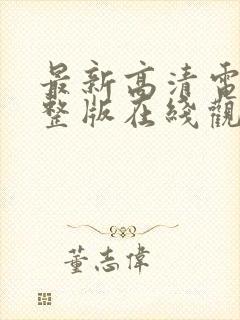 最新高清電
整版在綫觀
董志偉